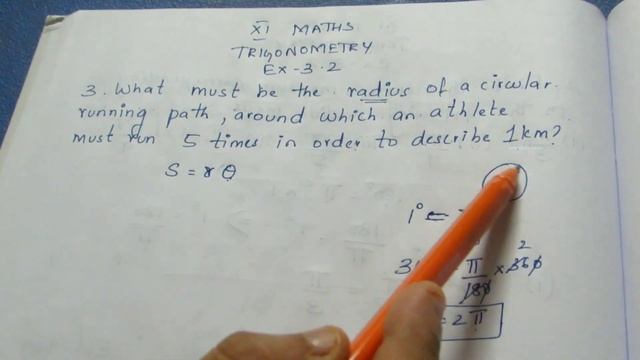 XI MATHS
TRIGONOMETRY
Ex-3.2
3. What must be the radius of a circular
running path, around which an athlete
must run 5 times in order to describe 1km?
S = r θ
1° =
3
π/180 × 360 2
= 2π